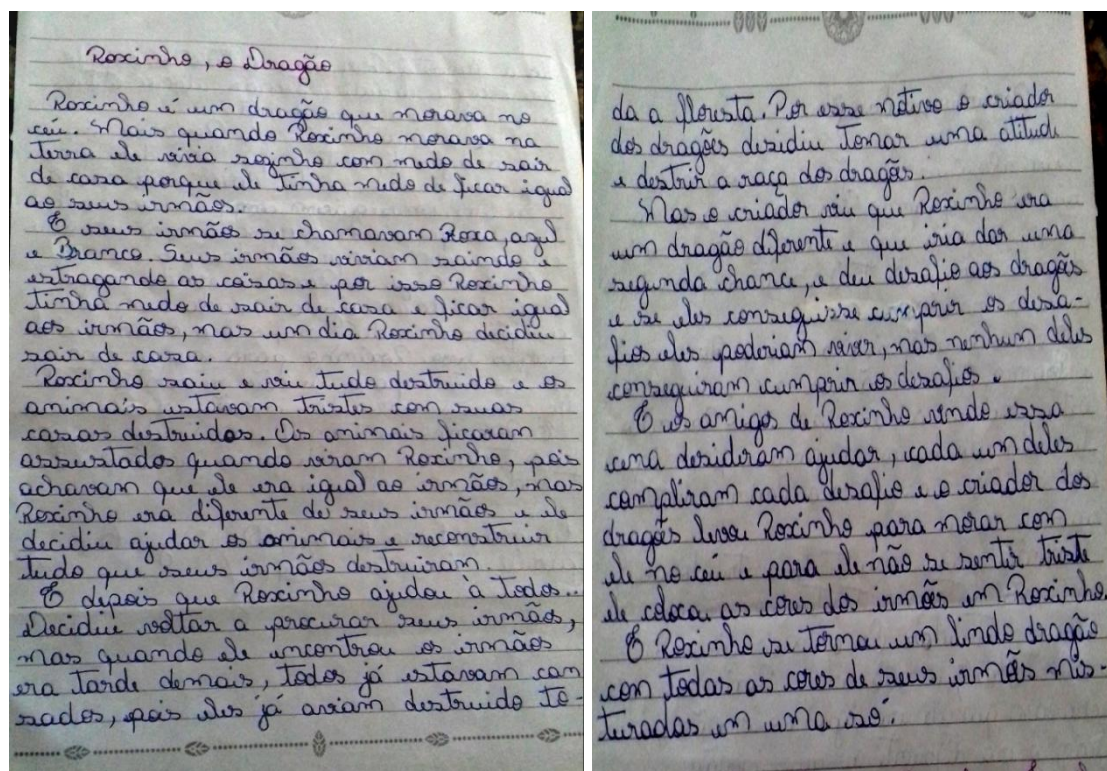 Roxinho, o Dragão
Roxinho é um dragão que morava no
céu. Mais quando Roxinho morava na
terra ele vivia sozinho com medo de sair
de casa porque ele tinha medo de ficar igual
ao seus irmãos.
E seus irmãos se chamavam Roxa, azul
e Branco. Seus irmãos viviam saindo e
estragando as coisas e por isso Roxinho
tinha medo de sair de casa e ficar igual
aos irmãos, mas um dia Roxinho decidiu
sair de casa.
Roxinho saiu e viu tudo destruido e os
animais estavam tristes com suas
casas destruidas. Os animais ficaram
assustados quando viram Roxinho, pois
achavam que ele era igual ao irmãos, mas
Roxinho era diferente de seus irmãos e ele
decidiu ajudar os animais e reconstruir
tudo que seus irmãos destruiram.
E depois que Roxinho ajudou à todos..
Decidiu voltar a procurar seus irmãos,
mas quando ele encontrou os irmãos
era tarde demais, todos já estavam can
sados, pois eles já aviam destruido to-
da a floresta. Por esse motivo o criador
dos dragões desidiu tomar uma atitude
e destrir a raça dos dragãs.
Mas o criador viu que Roxinho era
um dragão diferente e que iria dar uma
segunda chance, e deu desafio aos dragãs
e se eles conseguisse cumprir os desa-
fios eles poderiam viver, mas nenhum deles
conseguiram cumprir os desafios.
E os amigos de Roxinho vendo essa
cena desideram ajudar, cada um deles
compliram cada desafio e o criador dos
dragãs levou Roxinho para morar com
ele no céu e para ele não se sentir triste
ele colocou as cores dos irmãos em Roxinho.
E Roxinho se tornou um lindo dragão
com todas as cores de seus irmãs mis-
turadas em uma só.